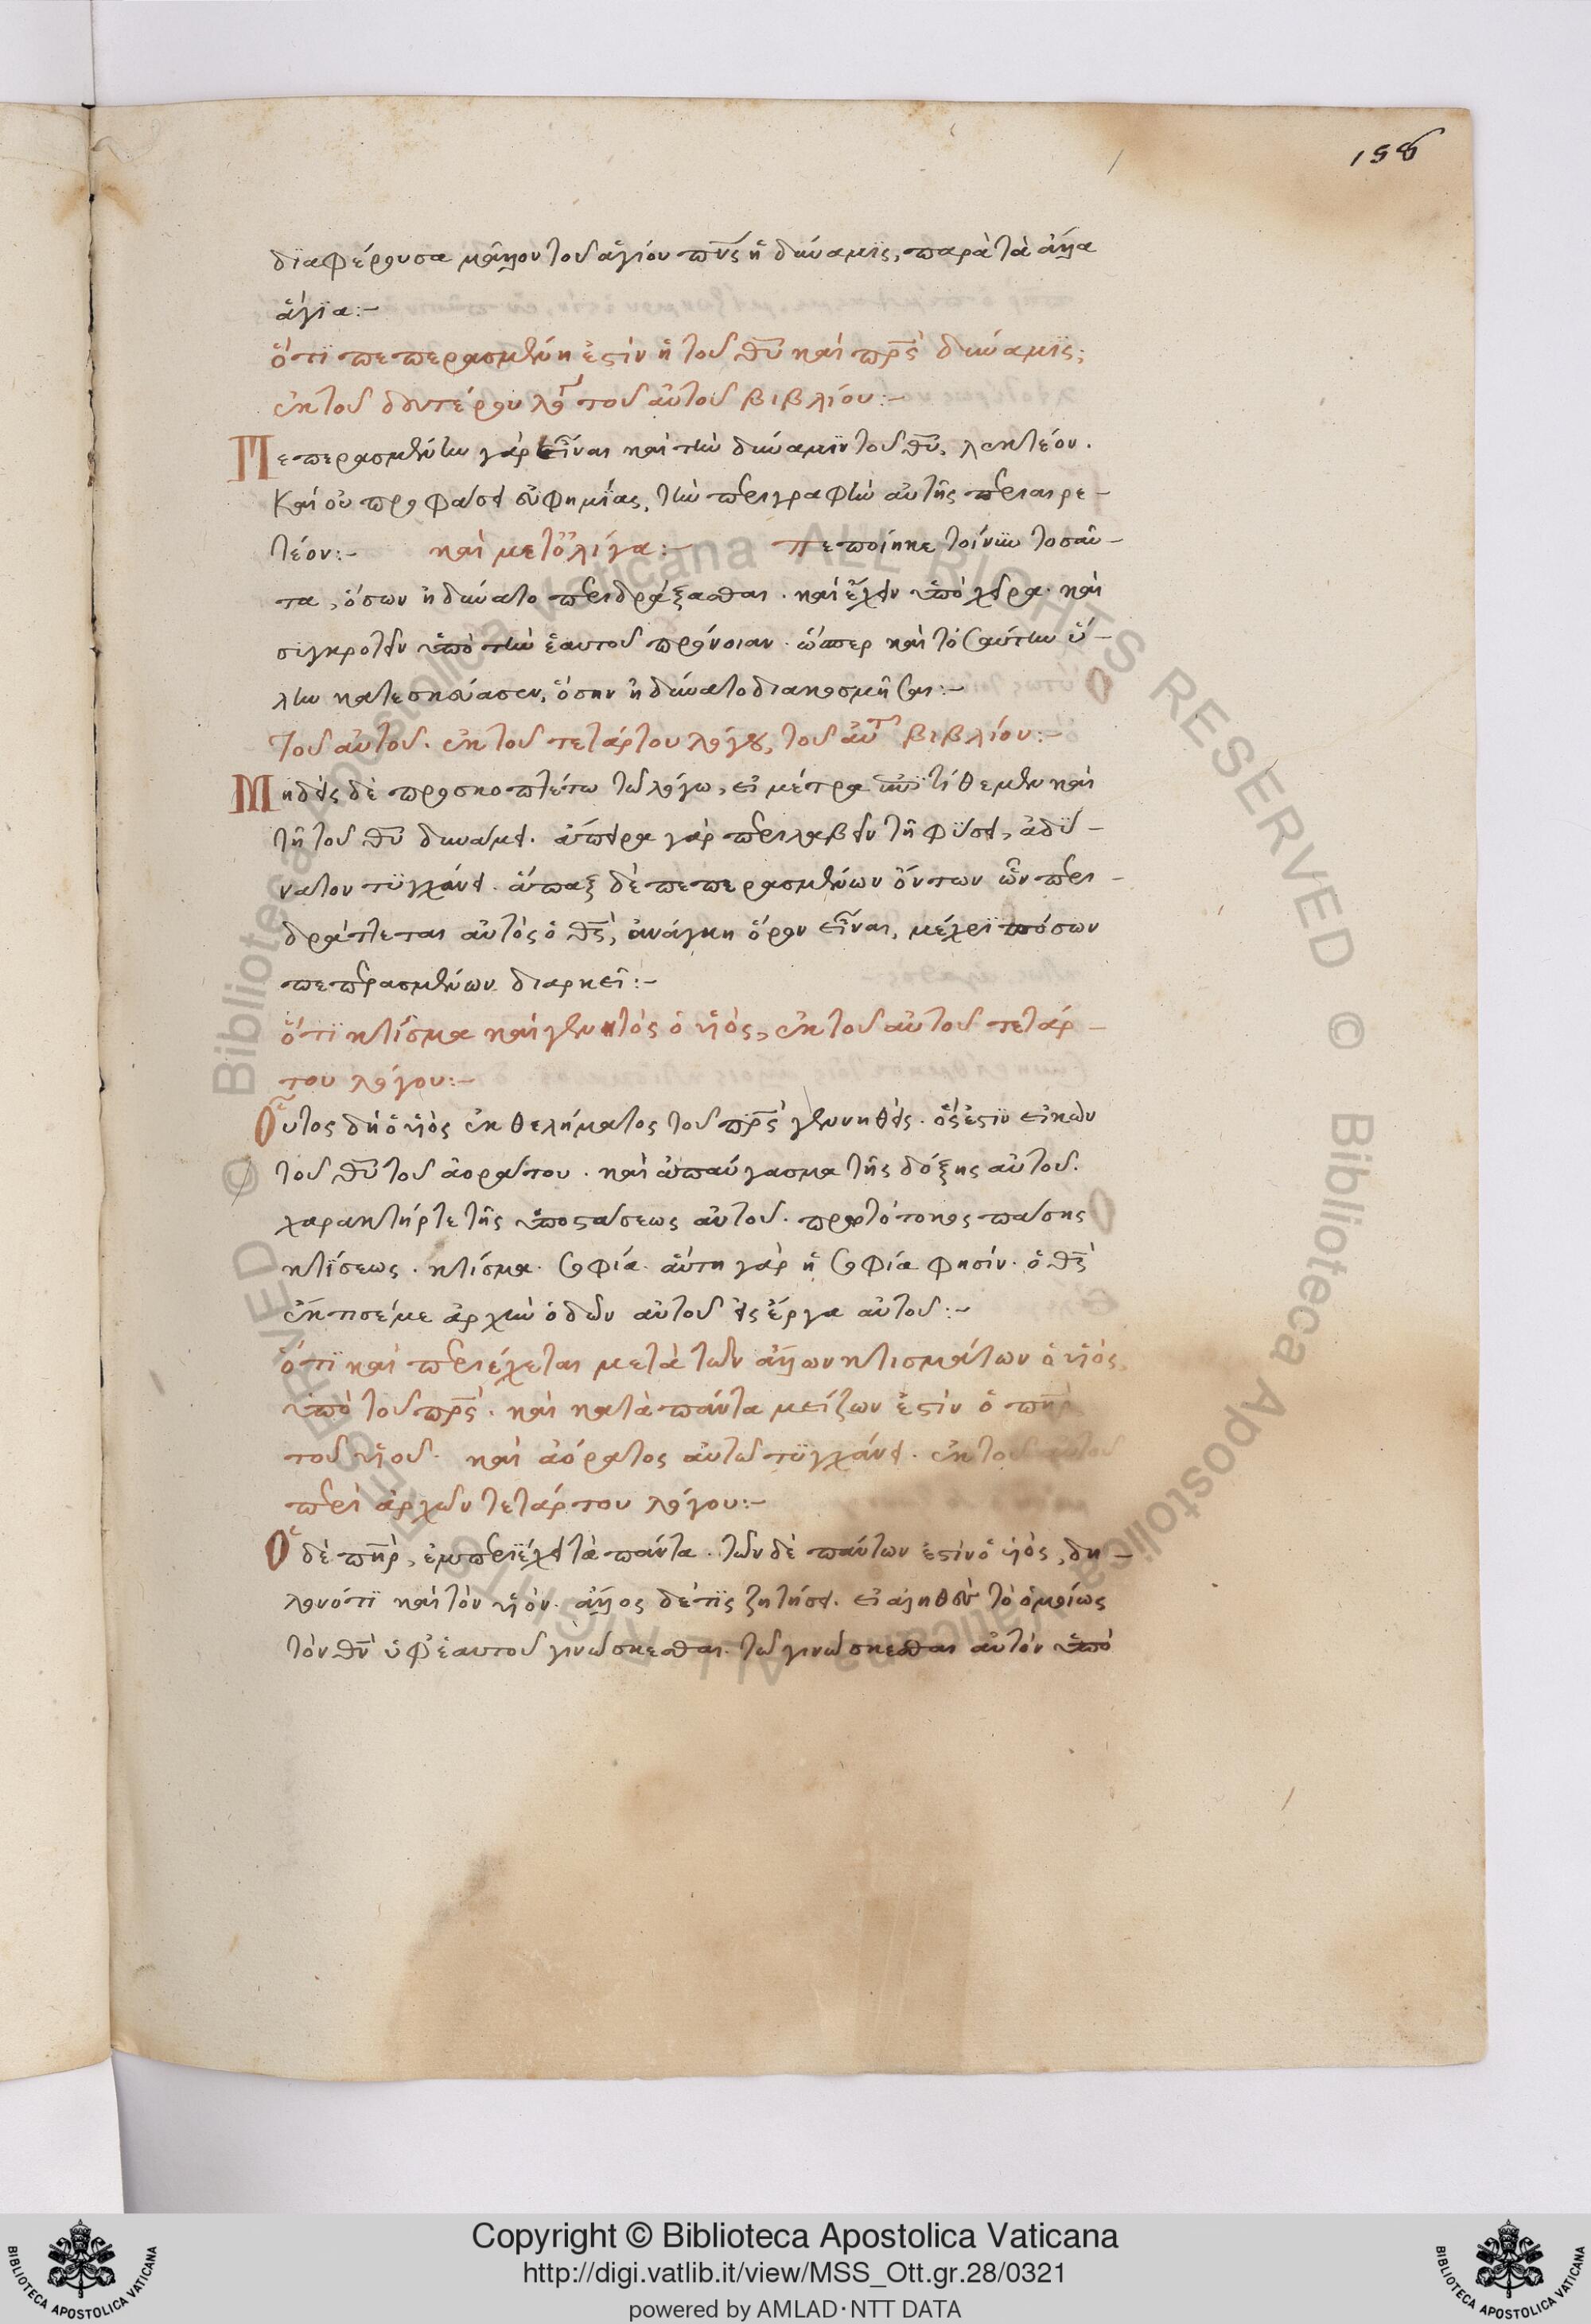 158
διαφέρουσα μᾶλλον τοῦ ἁγίου πν̅ς ἡ δύναμϊς, παρὰ τὰ ἄλλα
ἅγια:-
ὅτι πεπερασμένη ἐστὶν ἡ τοῦ θ̅υ καὶ πρ̅ς δύναμϊς;
ἐκ τοῦ δευτέρου λό τοῦ αὐτοῦ βιβλίου:-
Πεπερασμένην γὰρ εἶναι καὶ τὴν δύναμϊν τοῦ θ̅υ, λεκτέον.
Καὶ οὐ προφάσει εὐφημίας, τὴν περιγραφὴν αὐτῆς περιαιρε-
τέον:- καὶ μετ' ὀλίγα:- πεποίηκε τοίνυν τοσαῦ-
τα, ὅσων ἠδύνατο περιδράξασθαι. καὶ ἔχειν ὑπὸ χεῖρα. καὶ
συγκροτεῖν ὑπὸ τὴν ἑαυτοῦ πρόνοιαν. ὥσπερ καὶ τοσαύτην ὕ-
λην κατεσκεύασεν, ὅσην ἠδύνατο διακοσμῆσαι:-
Τοῦ αὐτοῦ. ἐκ τοῦ τετάρτου λόγου, τοῦ αὐτ βιβλίου:-
Μηδεὶς δὲ προσκοπτέτω τῷ λόγω, εἰ μέτρα ἐπιτίθεμεν καὶ
τῆ τοῦ θ̅υ δυνάμει. ἄπειρα γὰρ περιλαβεῖν τῆ φύσει, ἀδύ-
νατον τυγχάνει. ἅπαξ δὲ πεπερασμένων ὄντων ὧν περι-
δράττεται αὐτὸς ὁ θ̅ς, ἀνάγκη ὅρον εἶναι, μέχρι πόσων
πεπερασμένων διαρκεῖ:-
ὅτι κτίσμα καὶ γενητὸς ὁ υἱὸς, ἐκ τοῦ αὐτοῦ τετάρ-
του λόγου:-
Οὗτος δὴ ὁ υἱὸς ἐκ θελήματος τοῦ πρ̅ς γεννηθεὶς. ὅς ἐστιν εἰκὼν
τοῦ θ̅υ τοῦ ἀοράτου. καὶ ἀπαύγασμα τῆς δόξης αὐτοῦ.
χαρακτήρ τε τῆς ὑποστάσεως αὐτοῦ. πρωτότοκος πάσης
κτίσεως. κτίσμα. σοφία. αὕτη γὰρ ἡ σοφία φησίν. ὁ θ̅ς
ἔκτισέ με ἀρχὴν ὁδῶν αὐτοῦ εἰς ἔργα αὐτοῦ:-
ὅτι καὶ περιέχεται μετὰ τῶν ἄλλων κτισμάτων ὁ υἱὸς
ὑπὸ τοῦ πρ̅ς. καὶ κατὰ πάντα μείζων ἐστὶν ὁ πη̅ρ
τοῦ υἱοῦ. καὶ ἀόρατος αὐτῶ τυγχάνει. ἐκ τοῦ αὐτοῦ
περὶ ἀρχῶν τετάρτου λόγου:-
Ὁ δὲ πη̅ρ, ἐμπεριέχει τὰ πάντα. τῶν δὲ πάντων ἐστὶν ὁ υἱὸς, δη-
λονότι καὶ τὸν υἱόν. ἄλλος δέ τις ζητήσει. εἰ ἀληθὲς τὸ ὁμοίως
τὸν θ̅ν ὑφ' ἑαυτοῦ γινώσκεσθαι. τῶ γινώσκεσθαι αὐτὸν ὑπὸ
Copyright © Biblioteca Apostolica Vaticana
http://digi.vatlib.it/view/MSS_Ott.gr.28/0321
powered by AMLAD·NTT DATA